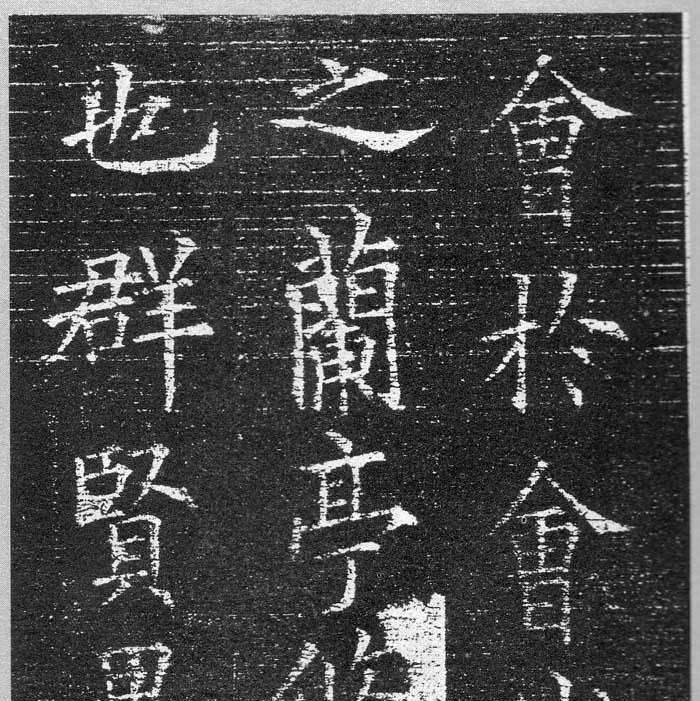 會於會
之蘭亭
也群賢